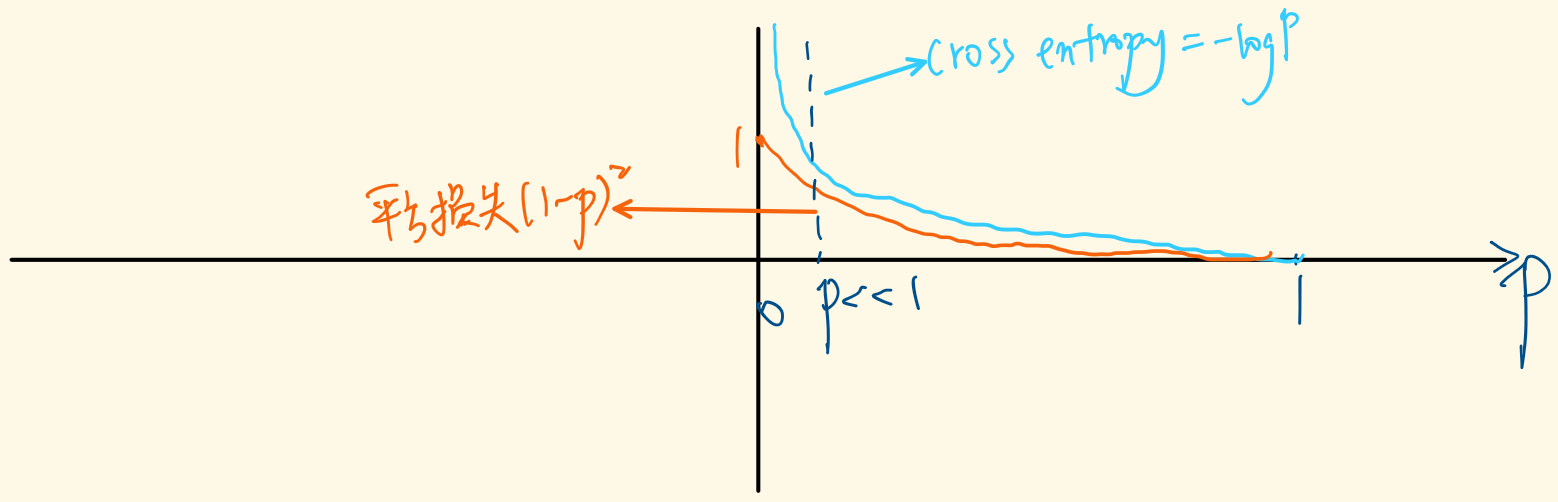 Cross entropy = -log p
1
平方损失(1-p)²
0
p<<1
1
p